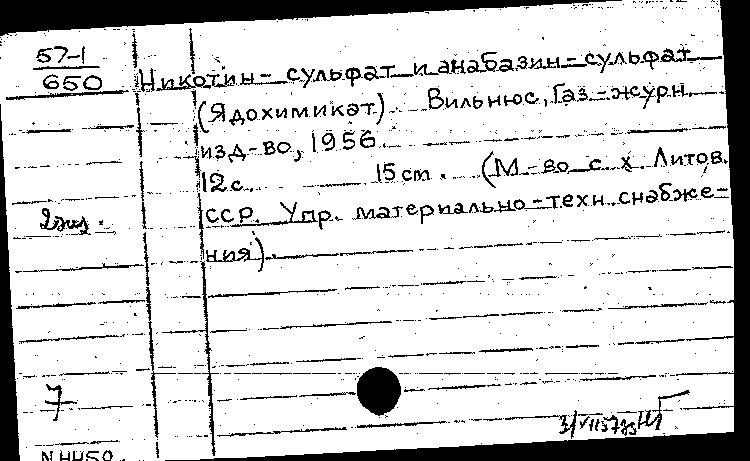 57-1
650
Никотин-сульфат и анабазин-сульфат
(Ядохимикат). Вильнюс, Газ.-журн.
изд-во, 1956.
12с. 15 cm. (М-во с. х. Литов.
2 экз.
ССР. Упр. материально-техн. снабже-
ния).
7
N 4450.